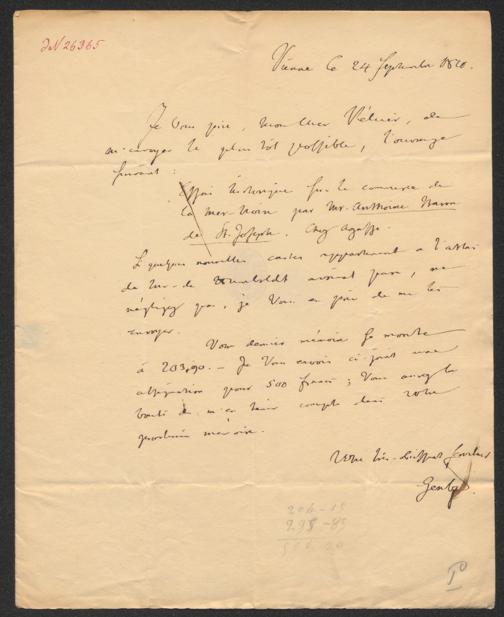 IN 26365
Vienne le 24 Septembre 1820.
Je Vous prie, mon cher
m'envoyer le plus tôt possible, l'ouvrage
suivant :
Essai historique sur le commerce de
la mer Noire par Mr. Anthoine Baron
de St. Joseph. Chez Agasse.
Si quelques nouvelles cartes appartenant à l'atlas
de Mr. de Humboldt avoient paru, ne
négligez pas, je Vous en prie de me les
envoyer.
Votre dernier mémoire se monte
à 203,90. – Je Vous envois ci-joint une
pour 500 francs ; Vous aurez la
bonté de m'en tenir compte dans votre
prochain mémoire.
Votre très-
Gentz
206-15
293-85
500.00